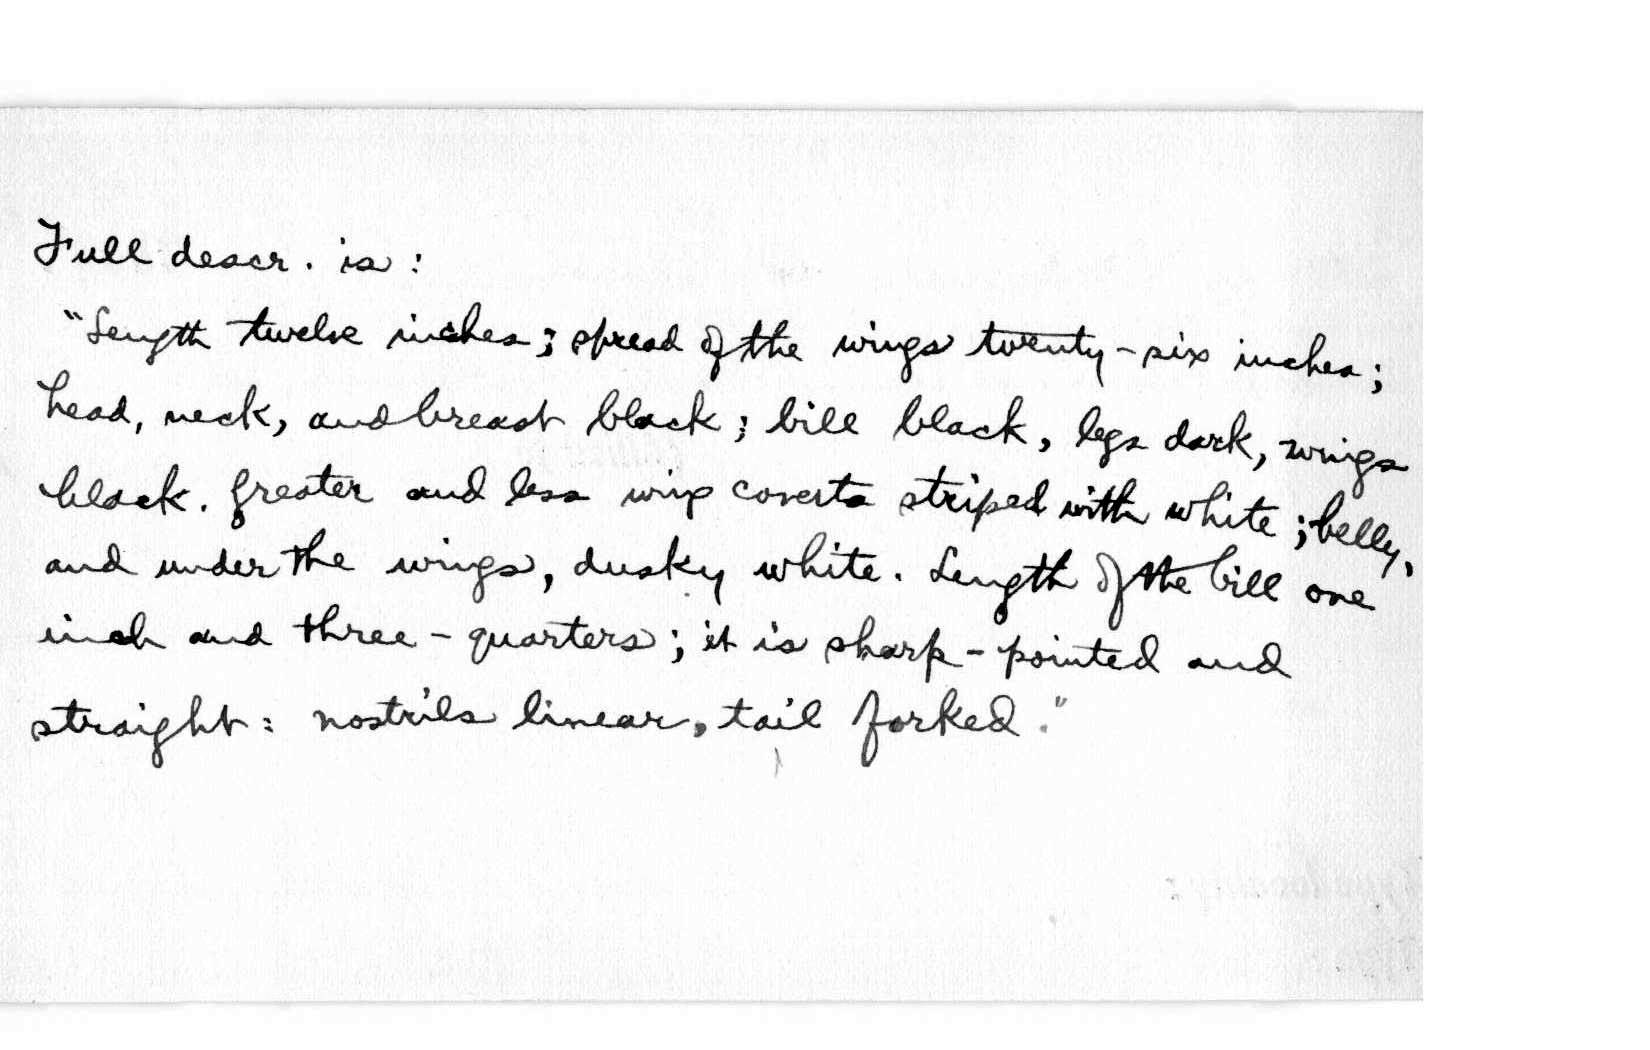 Full descr. is:
"Length twelve inches; spread of the wings twenty-six inches;
head, neck, and breast black; bill black, legs dark, wings
black. Greater and less wing coverts striped with white; belly,
and under the wings, dusky white. Length of the bill one
inch and three-quarters; it is sharp-pointed and
straight: nostrils linear, tail forked."